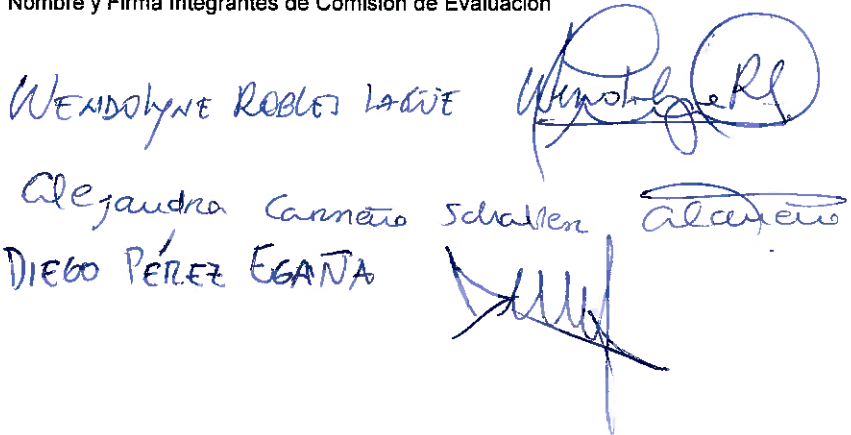 Nombre y Firma Integrantes de Comisión de Evaluación
WENDOLYNE ROBLES LAGÜE Wendolyne RL
Alejandra Carreño Schaller alcarreño
DIEGO PÉREZ EGAÑA